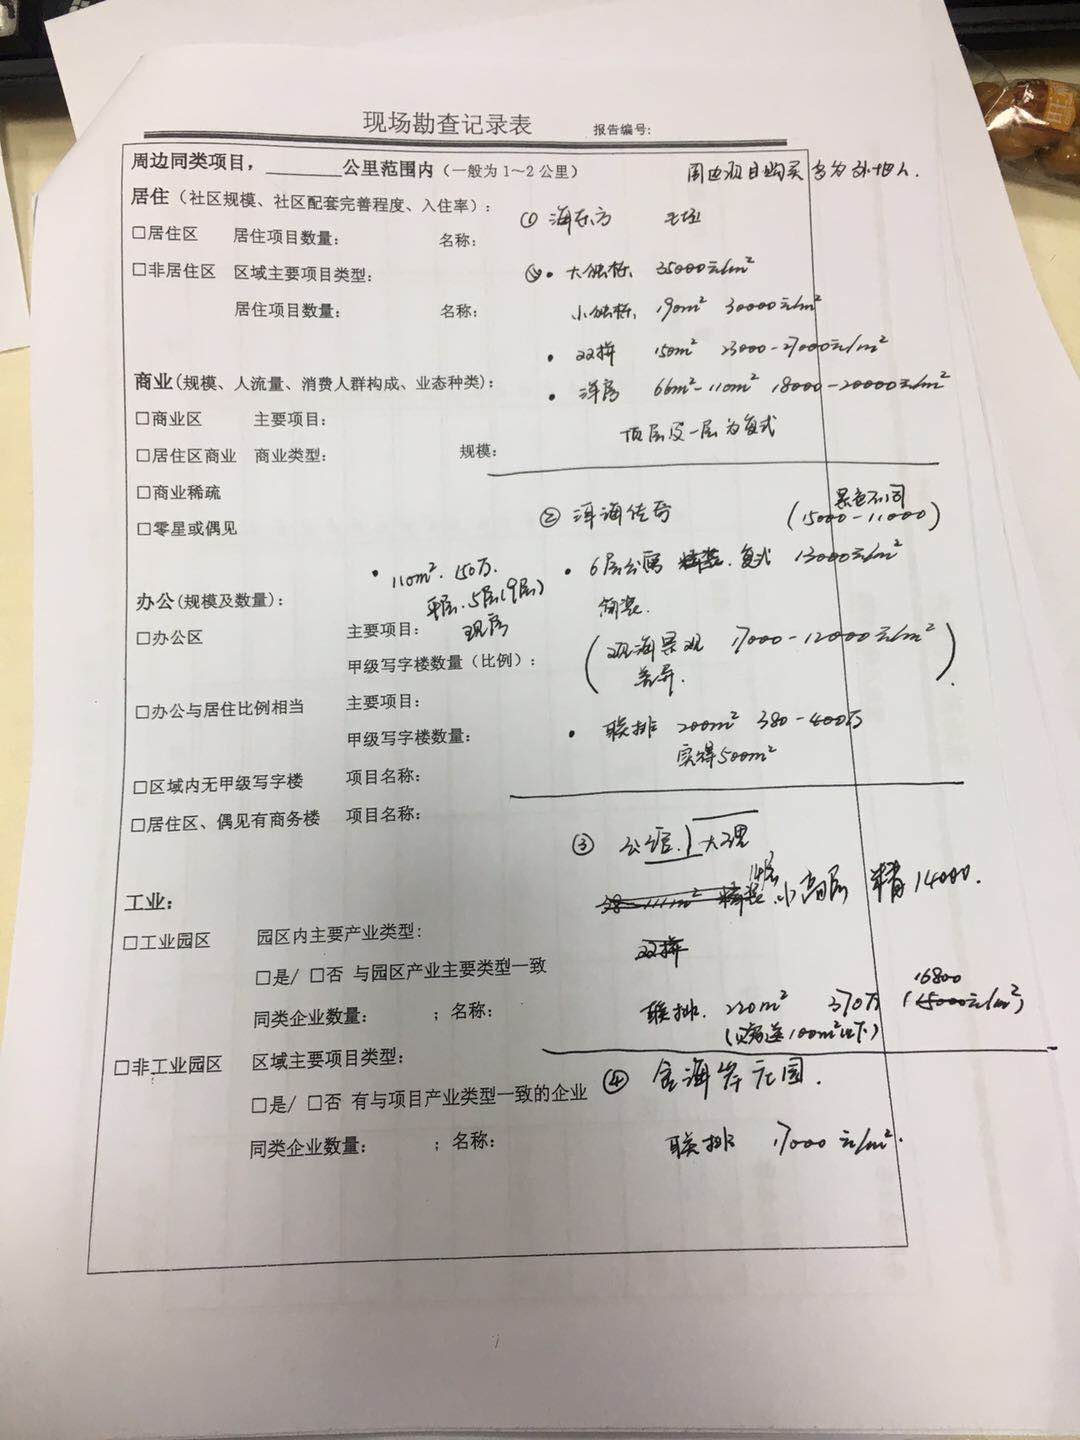 现场勘查记录表 报告编号:
周边同类项目，________公里范围内（一般为1～2公里）
周边项目购买者为外地人.
居住（社区规模、社区配套完善程度、入住率）:
① 海东方 毛坯
□居住区 居住项目数量: 名称:
□非居住区 区域主要项目类型:
• 大独栋. 35000元/m²
居住项目数量: 名称:
小独栋. 190m² 30000元/m²
• 双拼 150m² 23000-27000元/m²
商业(规模、人流量、消费人群构成、业态种类):
• 洋房 66m²-110m² 18000-20000元/m²
□商业区 主要项目:
顶层及一层为复式
□居住区商业 商业类型: 规模:
□商业稀疏
景色不同
② 洱海传奇 (15000-11000)
□零星或偶见
• 110m². 150万.
• 6层公寓 精装. 复式 13000元/m²
平层. 5层(9层)
简装.
办公(规模及数量):
现房
□办公区 主要项目:
(观海景观 17000-12000元/m²
差异.)
甲级写字楼数量（比例）:
□办公与居住比例相当 主要项目:
甲级写字楼数量:
• 联排 200m² 380-400万
实得500m²
□区域内无甲级写字楼 项目名称:
□居住区、偶见有商务楼 项目名称:
③ 公馆.1 大理
14层
精装. 小高层 精14000.
工业:
□工业园区 园区内主要产业类型:
双拼
□是/ □否 与园区产业主要类型一致
16800
同类企业数量: ; 名称:
联排. 220m² 370万 (15000元/m²)
100m²以下)
□非工业园区 区域主要项目类型:
④ 金海岸庄园.
□是/ □否 有与项目产业类型一致的企业
同类企业数量: ; 名称:
联排 17000元/m².